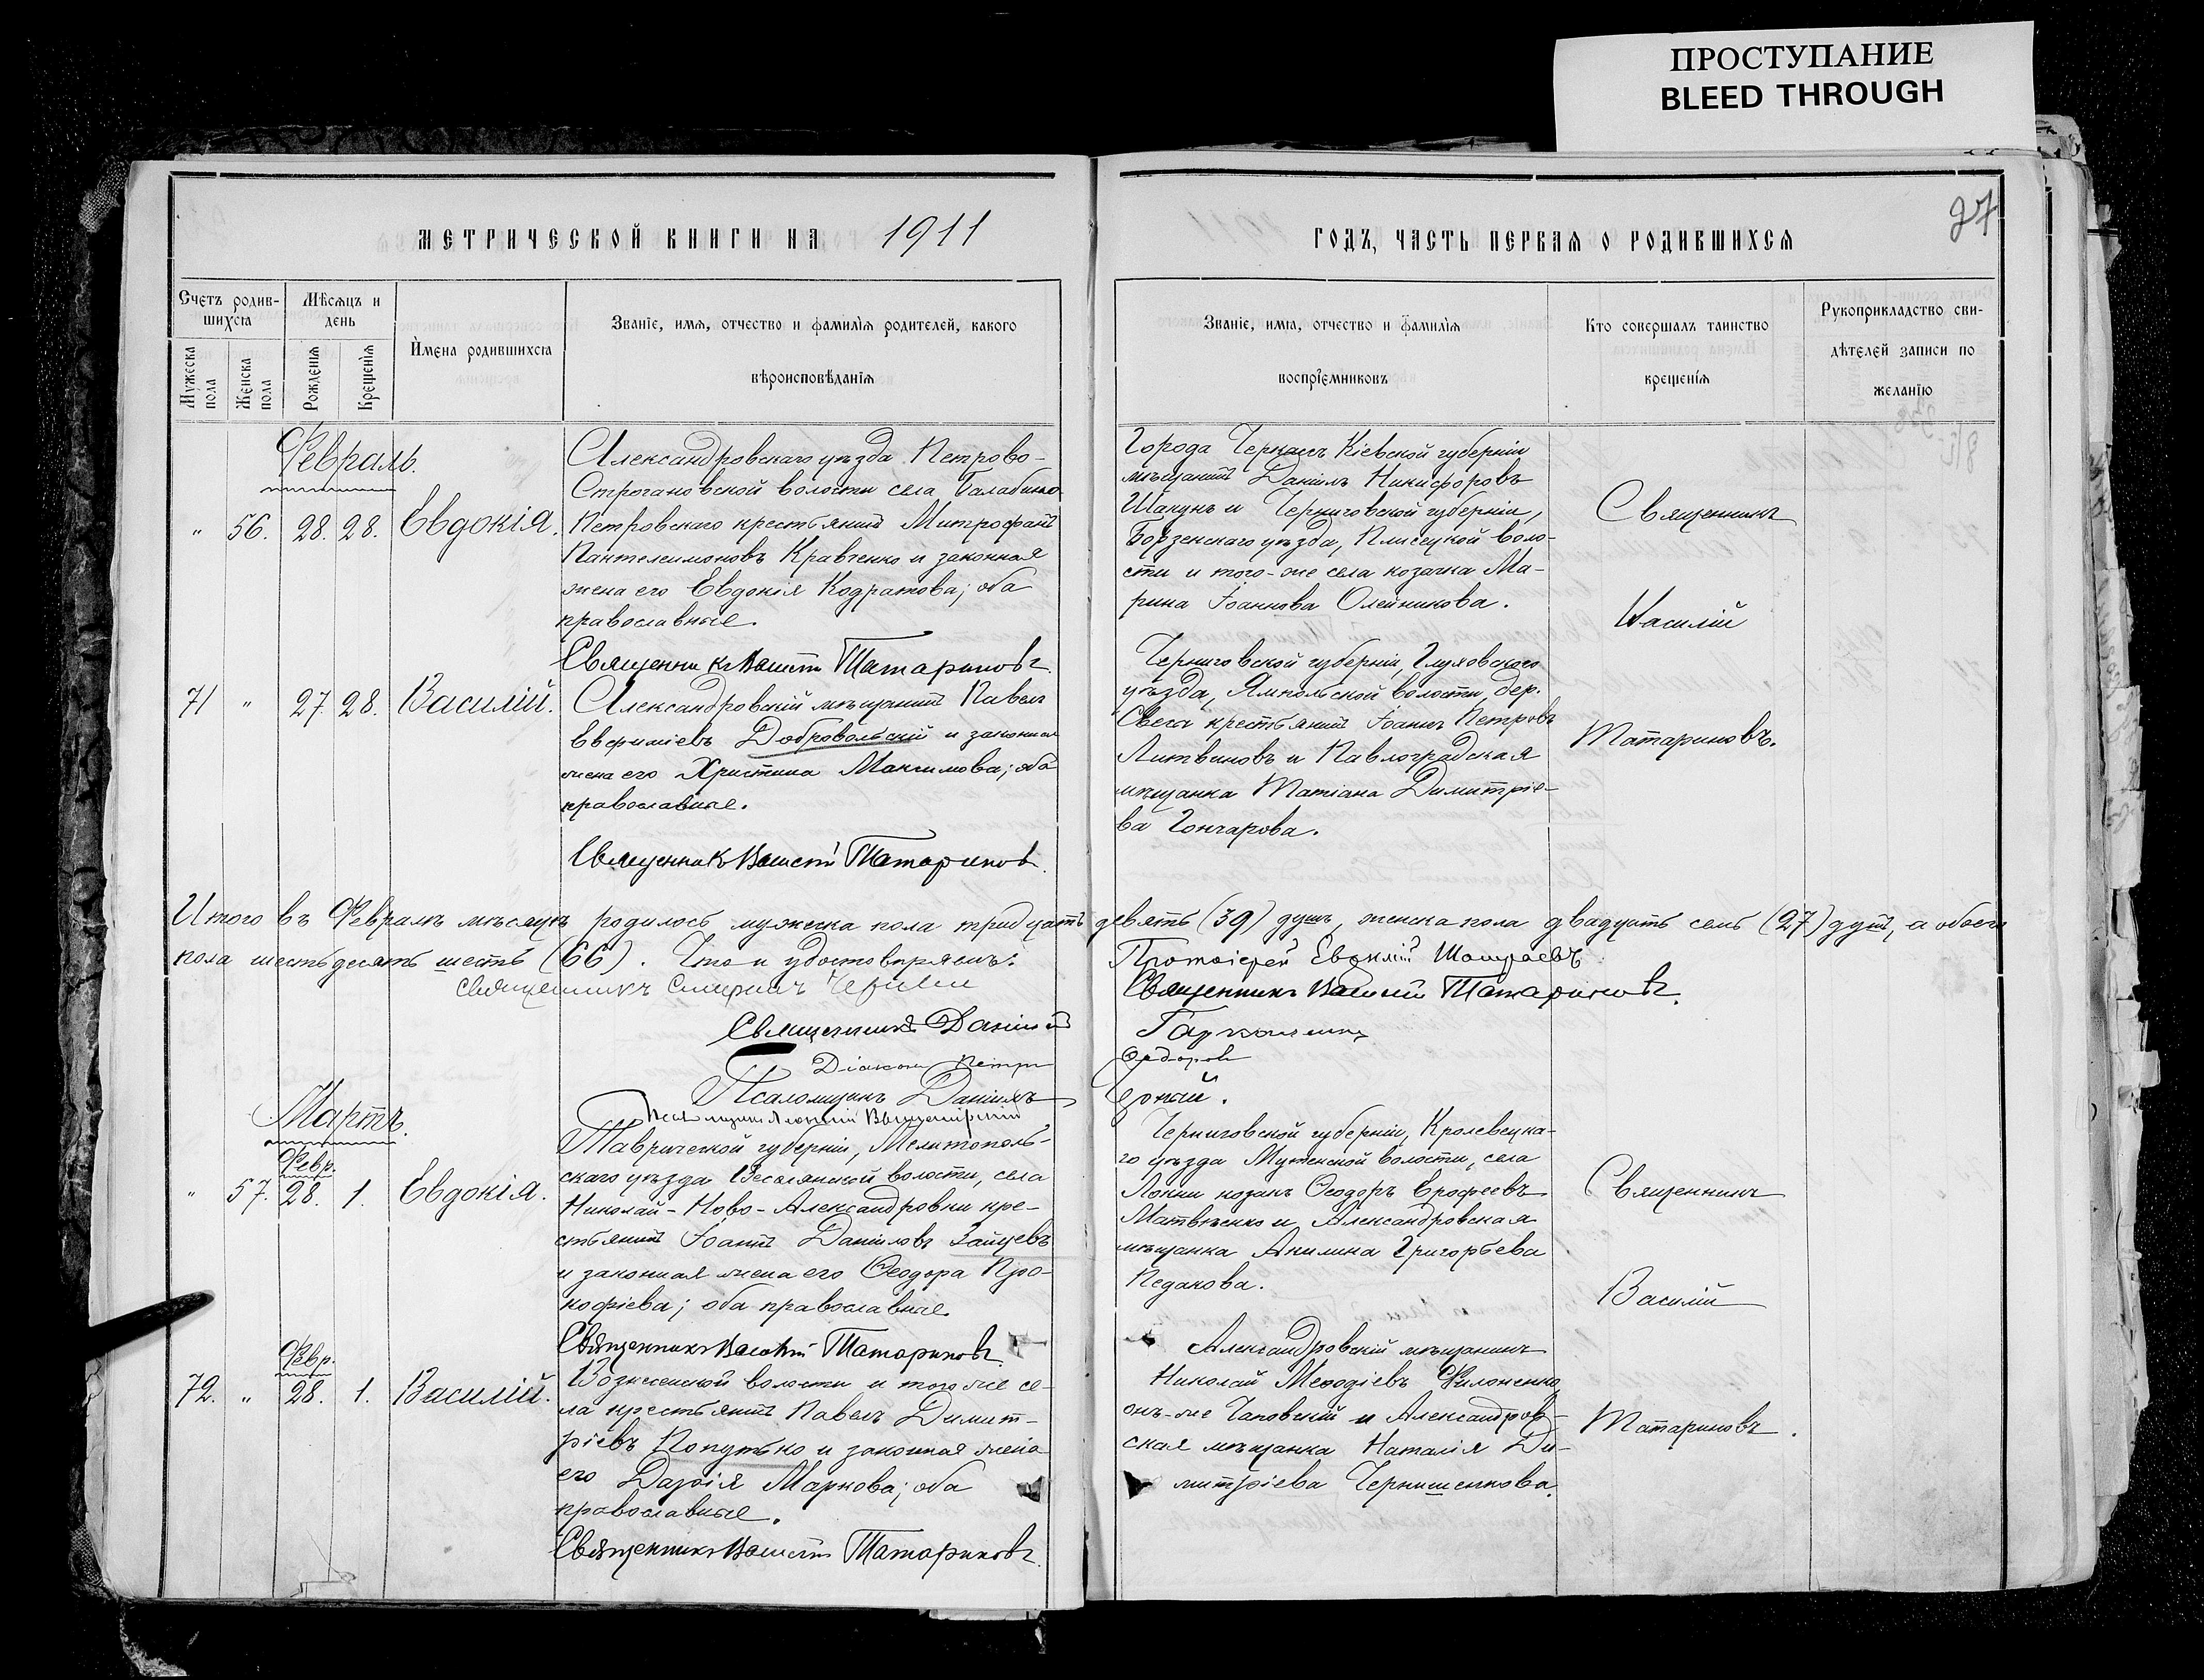 ПРОСТУПАНИЕ
BLEED THROUGH
27
МЕТРИЧЕСКОЙ КНИГИ НА 1911
ГОДЪ, ЧАСТЬ ПЕРВАЯ О РОДИВШИХСЯ
Счетъ родившихся
Мужеска пола
Женска пола
Мѣсяцъ и день
Рожденія
Крещенія
Имена родившихся
Званіе, имя, отчество и фамилія родителей, какого
вѣроисповѣданія
Званіе, имя, отчество и фамилія
воспріемниковъ
Кто совершалъ таинство
крещенія
Рукоприкладство сви-
дѣтелей записи по
желанію
Февраль.
" 56. 28. 28. Евдокія.
Александровскаго уѣзда Петрово-
Строгановской волости села Балабино-
Петровскаго крестьянинъ Митрофанъ
Пантелеимоновъ Кравченко и законная
жена его Евдокія Кодратова; оба
православные.
Священникъ Василій Татариновъ.
Города Черкасъ Кіевской губерніи
мѣщанинъ Даніилъ Никифоровъ
Шакунъ и Черниговской губерніи,
Борзенскаго уѣзда, Плисецкой воло-
сти и того-же села козачка Ма-
рина Іоаннова Олейникова.
Священникъ
Василій
Татариновъ.
71 " 27. 28. Василій.
Александровскій мѣщанинъ Павелъ
Евфиміевъ Добровольскій и законная
жена его Христина Максимова; оба
православные.
Священникъ Василій Татариновъ.
Черниговской губерніи, Глуховскаго
уѣзда, Ямпольской волости, дер.
Свеса крестьянинъ Іоаннъ Петровъ
Литвиновъ и Павлоградская
мѣщанка Татіана Димитріе-
ва Гончарова.
Итого въ Февралѣ мѣсяцѣ родилось мужеска пола тридцать девять (39) душъ, женска пола двадцать семь (27) душъ, а обоего
пола шестьдесятъ шесть (66). Что и удостовѣряемъ:
Протоіерей Евфимій
Священникъ
Священникъ Василій Татариновъ.
Священникъ Даніилъ
Діаконъ Петръ Федоров
Псаломщикъ Даніилъ
Псаломщикъ
Мартъ.
" 57. Февр. 28. 1. Евдокія.
Таврической губерніи, Мелитополь-
скаго уѣзда Веселянской волости, села
Николай-Ново-Александровки кре-
стьянинъ Іоаннъ Даніиловъ Зайцевъ
и законная жена его Феодора Про-
кофіева; оба православные.
Священникъ Василій Татариновъ.
Черниговской губерніи, Кролевецка-
го уѣзда Мутенской волости, села
Локни козакъ Феодоръ Ерофеевъ
Матвѣенко и Александровская
мѣщанка Акилина Григорьева
Педакова.
Священникъ
Василій
Татариновъ.
72. " Февр. 28. 1. Василій.
Вознесенской волости и того же се-
ла крестьянинъ Павелъ Димит-
ріевъ Попутько и законная жена
его Дарія Маркова; оба
православные.
Священникъ Василій Татариновъ.
Александровскій мѣщанинъ
Николай Мефодіевъ Филоненко,
онъ-же Гаповскій и Александров-
ская мѣщанка Наталія Ди-
митріева Чернишенкова.